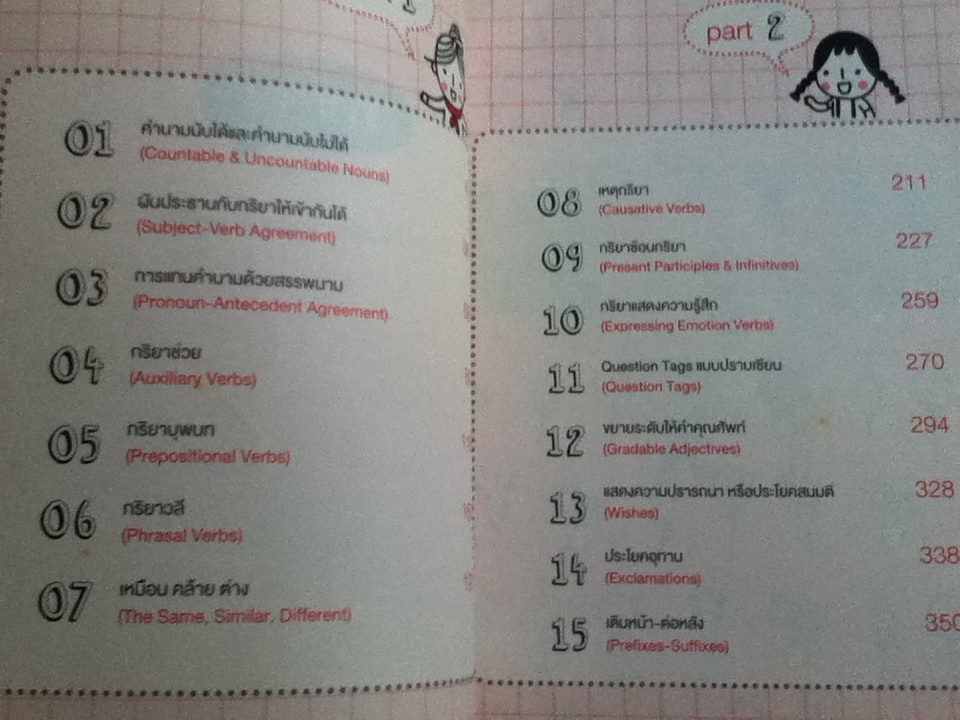 1
01
คำนามนับได้และคำนามนับไม่ได้
(Countable & Uncountable Nouns)
02
ผันประธานกับกริยาให้เข้ากันได้
(Subject-Verb Agreement)
03
การแทนคำนามด้วยสรรพนาม
(Pronoun-Antecedent Agreement)
04
กริยาช่วย
(Auxiliary Verbs)
05
กริยาบุพบท
(Prepositional Verbs)
06
กริยาวลี
(Phrasal Verbs)
07
เหมือน คล้าย ต่าง
(The Same, Similar, Different)
part 2
08
เหตุกริยา
211
(Causative Verbs)
09
กริยาซ้อนกริยา
227
(Present Participles & Infinitives)
10
กริยาแสดงความรู้สึก
259
(Expressing Emotion Verbs)
11
Question Tags แบบปราบเซียน
270
(Question Tags)
12
ขยายระดับให้คำคุณศัพท์
294
(Gradable Adjectives)
13
แสดงความปรารถนา หรือประโยคสมมติ
328
(Wishes)
14
ประโยคอุทาน
338
(Exclamations)
15
เติมหน้า-ต่อหลัง
350
(Prefixes-Suffixes)